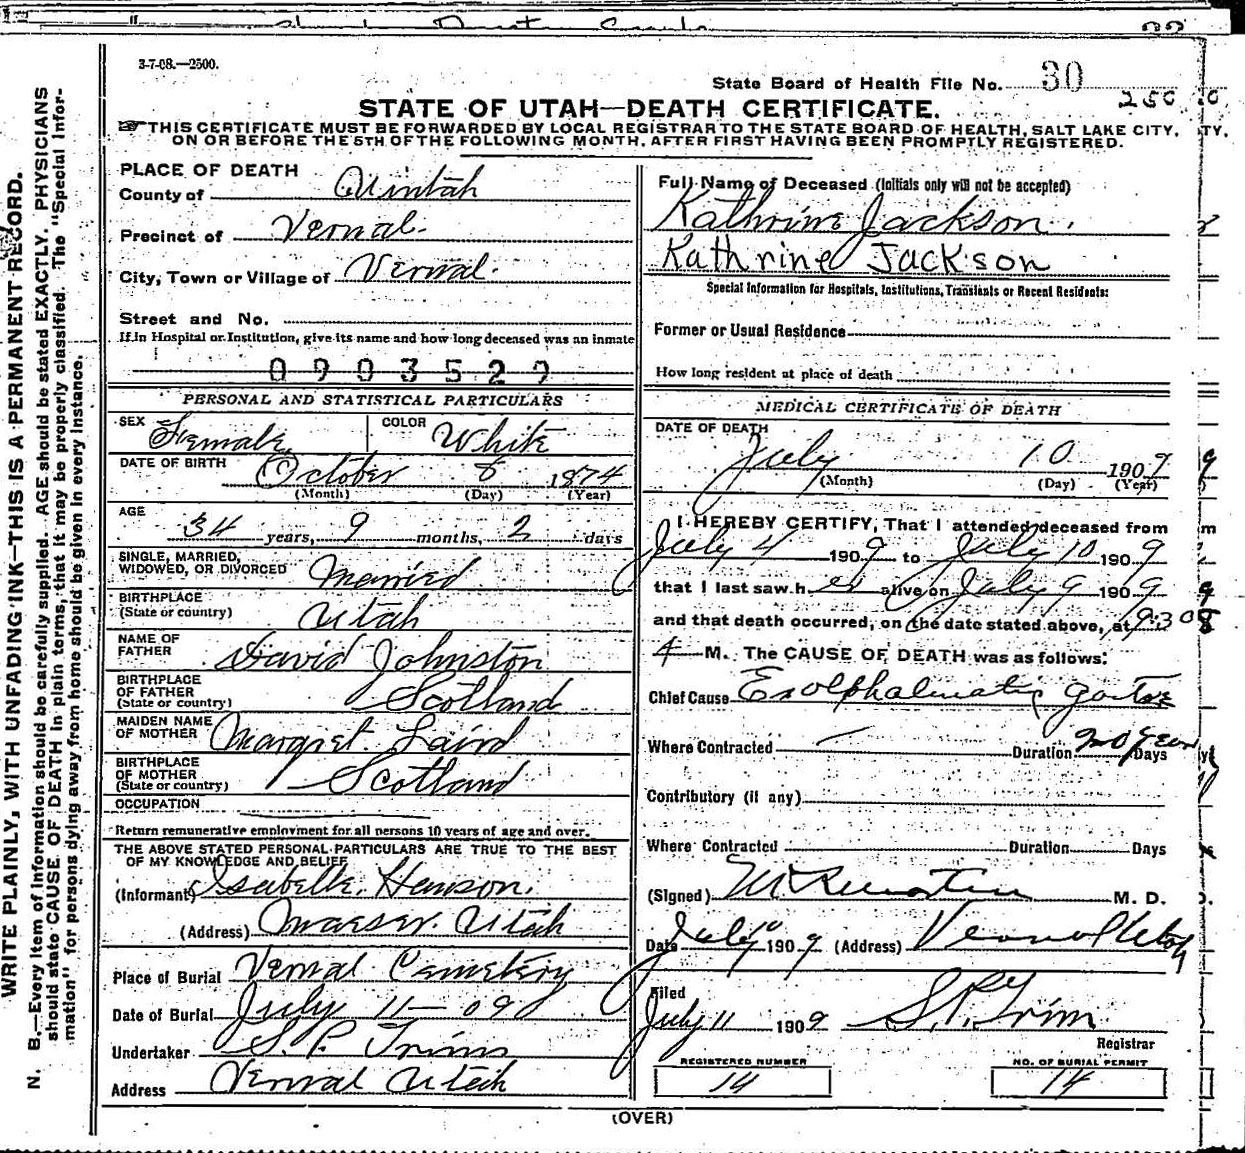 3-7-08.—2500.
State Board of Health File No. 30
250
STATE OF UTAH—DEATH CERTIFICATE.
THIS CERTIFICATE MUST BE FORWARDED BY LOCAL REGISTRAR TO THE STATE BOARD OF HEALTH, SALT LAKE CITY,
ON OR BEFORE THE 5TH OF THE FOLLOWING MONTH, AFTER FIRST HAVING BEEN PROMPTLY REGISTERED.
WRITE PLAINLY, WITH UNFADING INK—THIS IS A PERMANENT RECORD.
N. B.—Every item of information should be carefully supplied. AGE should be stated EXACTLY. PHYSICIANS
should state CAUSE OF DEATH in plain terms, that it may be properly classified. The "Special Infor-
mation" for persons dying away from home should be given in every instance.
PLACE OF DEATH
County of Uintah
Precinct of Vernal.
City, Town or Village of Vernal.
Street and No.
If in Hospital or Institution, give its name and how long deceased was an inmate
0903529
PERSONAL AND STATISTICAL PARTICULARS
SEX Female COLOR White
DATE OF BIRTH October 8 1874
(Month) (Day) (Year)
AGE
34 years, 9 months, 2 days
SINGLE, MARRIED,
WIDOWED, OR DIVORCED Married
BIRTHPLACE
(State or country) Utah
NAME OF
FATHER David Johnston
BIRTHPLACE
OF FATHER
(State or country) Scotland
MAIDEN NAME
OF MOTHER Margret Laird
BIRTHPLACE
OF MOTHER
(State or country) Scotland
OCCUPATION
Return remunerative employment for all persons 10 years of age and over.
THE ABOVE STATED PERSONAL PARTICULARS ARE TRUE TO THE BEST
OF MY KNOWLEDGE AND BELIEF
(Informant) Isabelle Hanson.
(Address) Maeser. Utah
Place of Burial Vernal Cemetery
Date of Burial July 11-09
Undertaker S. P. Trim
Address Vernal Utah
Full Name of Deceased (Initials only will not be accepted)
Kathrine Jackson.
Kathrine Jackson
Special Information for Hospitals, Institutions, Transients or Recent Residents:
Former or Usual Residence
How long resident at place of death
MEDICAL CERTIFICATE OF DEATH
DATE OF DEATH
July 10 1909
(Month) (Day) (Year)
I HEREBY CERTIFY, That I attended deceased from
July 4 1909 to July 10 1909
that I last saw her alive on July 9 1909
and that death occurred, on the date stated above, at 9:30
A M. The CAUSE OF DEATH was as follows:
Chief Cause Exolphalmatic goitre
Where Contracted — Duration 20 years Days
Contributory (if any)
Where Contracted Duration Days
(Signed) M. D.
Date July 10 1909 (Address) Vernal Utah
Filed
July 11 1909 S. P. Trim
Registrar
REGISTERED NUMBER NO. OF BURIAL PERMIT
14 14
(OVER)